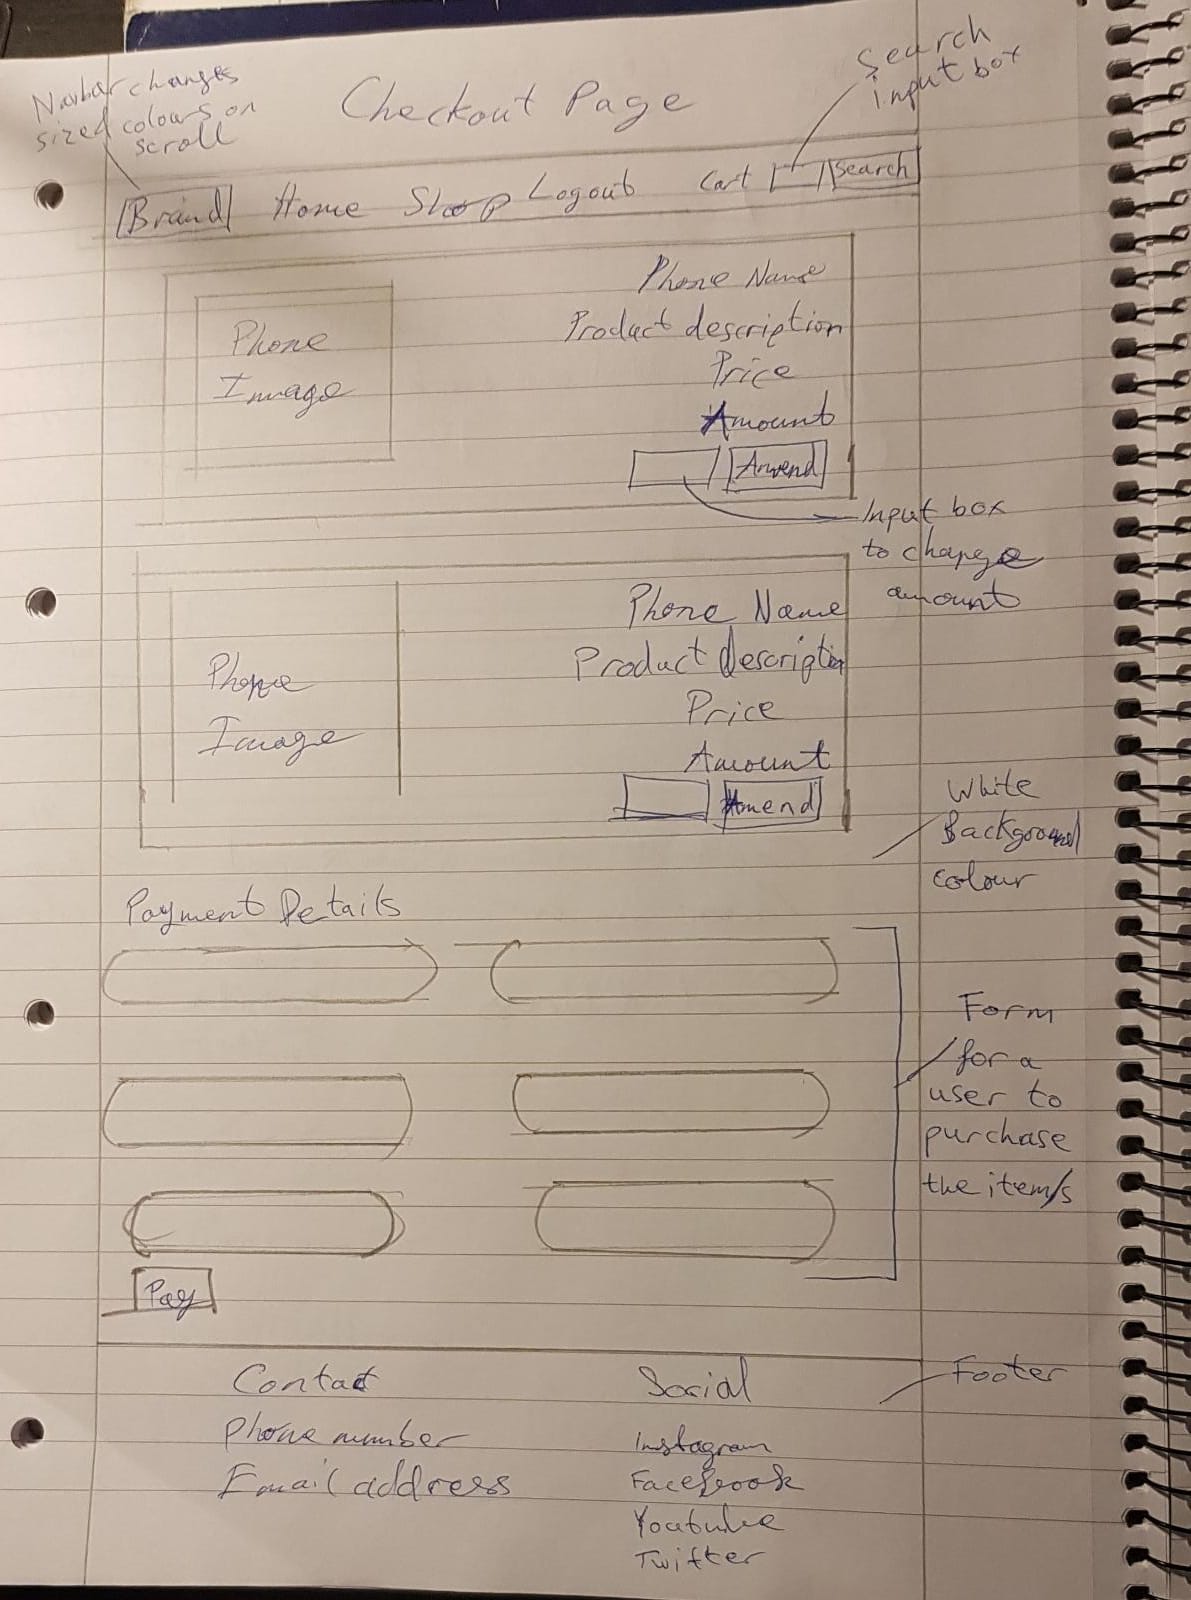 Navbar changes
sized colours on
scroll
Checkout Page
Search
input box
Brand Home Shop Logout Cart Search
Phone Name
Product description
Price
Amount
Amend
Phone
Image
Input box
to change
amount
Phone Name
Product description
Price
Amount
Amend
Phone
Image
White
Background
colour
Payment Details
Form
for a
user to
purchase
the item/s
Pay
Footer
Contact
Phone number
Email address
Social
Instagram
Facebook
Youtube
Twitter